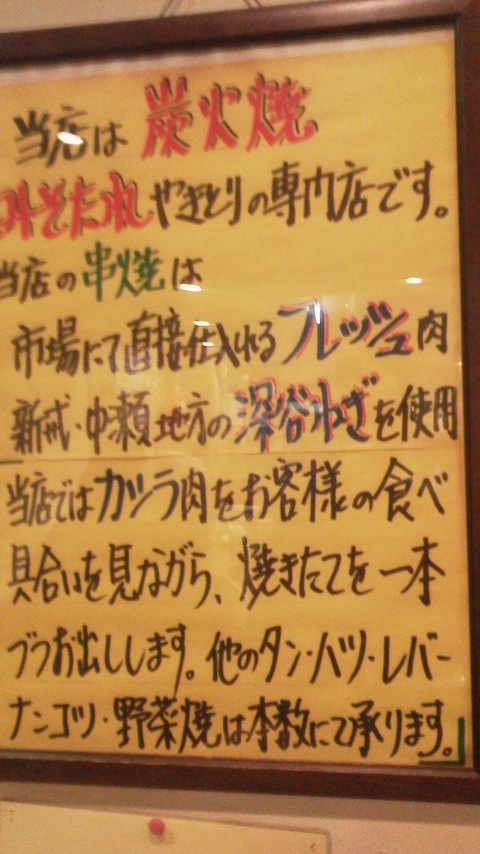 当店は炭火焼
みそたれやきとりの専門店です。
当店の串焼は
市場にて直接仕入れるフレッシュ肉
新戒・中瀬地方の深谷ねぎを使用
当店ではカシラ肉をお客様の食べ
具合いを見ながら、焼きたてを一本
づつお出しします。他のタン・ハツ・レバー
ナンコツ・野菜焼は本数にて承ります。